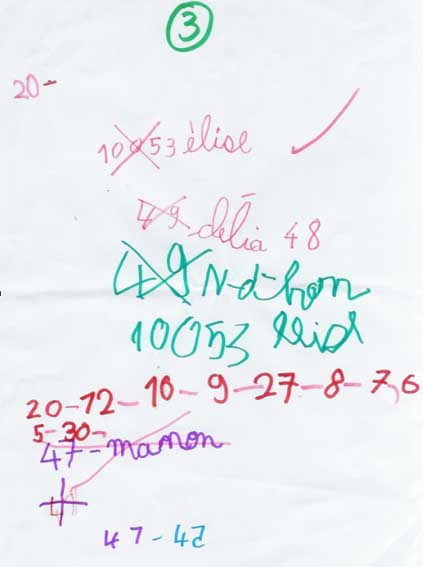 3
20-
10053 élise
49 délia 48
49 N-d-han
10053
20-12-10-9-27-8-7,6
5-30-
47-manon
47-45